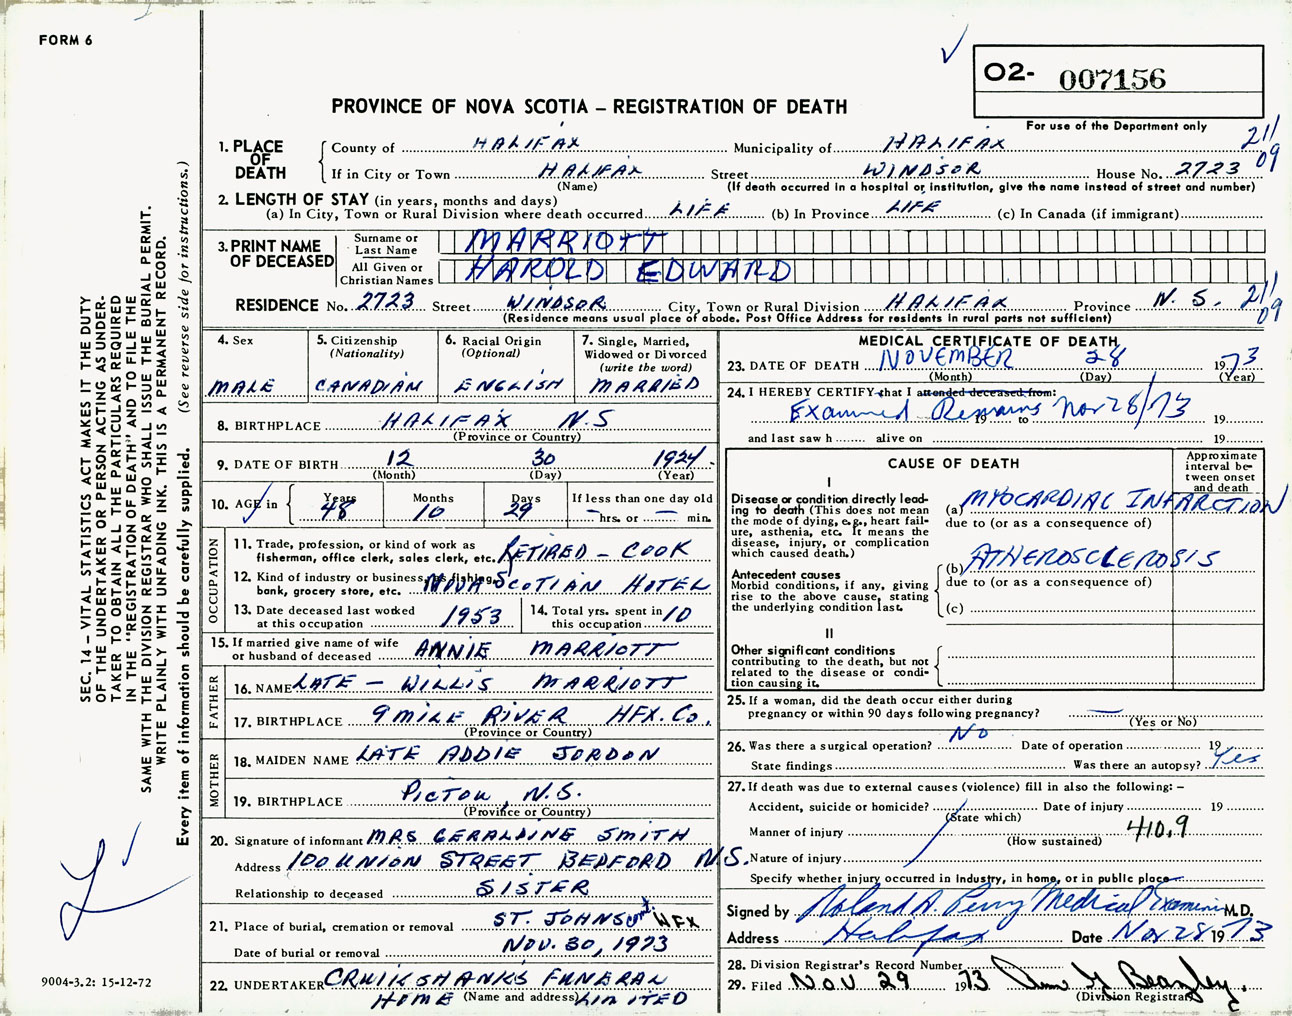 FORM 6
O2- 007156
PROVINCE OF NOVA SCOTIA – REGISTRATION OF DEATH
For use of the Department only
1. PLACE OF DEATH
County of HALIFAX Municipality of HALIFAX 211
If in City or Town HALIFAX Street WINDSOR House No. 2723 09
(Name) (If death occurred in a hospital or institution, give the name instead of street and number)
2. LENGTH OF STAY (in years, months and days)
(a) In City, Town or Rural Division where death occurred LIFE (b) In Province LIFE (c) In Canada (if immigrant)
3. PRINT NAME OF DECEASED
Surname or Last Name MARRIOTT
All Given or Christian Names HAROLD EDWARD
RESIDENCE No. 2723 Street WINDSOR City, Town or Rural Division HALIFAX Province N.S. 211 09
(Residence means usual place of abode. Post Office Address for residents in rural parts not sufficient)
4. Sex MALE
5. Citizenship (Nationality) CANADIAN
6. Racial Origin (Optional) ENGLISH
7. Single, Married, Widowed or Divorced (write the word) MARRIED
8. BIRTHPLACE HALIFAX N.S
(Province or Country)
9. DATE OF BIRTH 12 30 1924.
(Month) (Day) (Year)
10. AGE in Years 48 Months 10 Days 29 If less than one day old — hrs. or — min.
OCCUPATION
11. Trade, profession, or kind of work as fisherman, office clerk, sales clerk, etc. RETIRED – COOK
12. Kind of industry or business, as fishing, bank, grocery store, etc. NOVA SCOTIAN HOTEL
13. Date deceased last worked at this occupation 1953
14. Total yrs. spent in this occupation 10
15. If married give name of wife or husband of deceased ANNIE MARRIOTT
FATHER
16. NAME LATE – WILLIS MARRIOTT
17. BIRTHPLACE 9 MILE RIVER HFX. Co.
(Province or Country)
MOTHER
18. MAIDEN NAME LATE ADDIE JORDON
19. BIRTHPLACE PICTOU, N.S.
(Province or Country)
20. Signature of informant MRS GERALDINE SMITH
Address 100 UNION STREET BEDFORD N.S.
Relationship to deceased SISTER
21. Place of burial, cremation or removal ST. JOHNS cmt. HFX
Date of burial or removal NOV. 30, 1973
22. UNDERTAKER CRUIKSHANKS FUNERAL
HOME (Name and address) LIMITED
MEDICAL CERTIFICATE OF DEATH
23. DATE OF DEATH NOVEMBER 28 1973
(Month) (Day) (Year)
24. I HEREBY CERTIFY that I attended deceased from:
Examined Remains Nov 28/73 19 to 19
and last saw h alive on 19
CAUSE OF DEATH
Approximate interval between onset and death
I
Disease or condition directly leading to death (This does not mean the mode of dying, e.g., heart failure, asthenia, etc. It means the disease, injury, or complication which caused death.)
(a) MYOCARDIAL INFARCTION
due to (or as a consequence of)
Antecedent causes
Morbid conditions, if any, giving rise to the above cause, stating the underlying condition last.
(b) ATHEROSCLEROSIS
due to (or as a consequence of)
(c)
II
Other significant conditions
contributing to the death, but not related to the disease or condition causing it.
25. If a woman, did the death occur either during pregnancy or within 90 days following pregnancy? —
(Yes or No)
26. Was there a surgical operation? No Date of operation 19
State findings Was there an autopsy? Yes
27. If death was due to external causes (violence) fill in also the following: –
Accident, suicide or homicide? Date of injury 19
(State which)
Manner of injury 410.9
(How sustained)
Nature of injury
Specify whether injury occurred in industry, in home, or in public place
Signed by Roland A. Perry Medical Examiner M.D.
Address Halifax Date Nov 28 1973
28. Division Registrar's Record Number
29. Filed NOV 29 1973
(Division Registrar)
SEC. 14 – VITAL STATISTICS ACT MAKES IT THE DUTY
OF THE UNDERTAKER OR PERSON ACTING AS UNDER-
TAKER TO OBTAIN ALL THE PARTICULARS REQUIRED
IN THE "REGISTRATION OF DEATH" AND TO FILE THE
SAME WITH THE DIVISION REGISTRAR WHO SHALL ISSUE THE BURIAL PERMIT.
WRITE PLAINLY WITH UNFADING INK. THIS IS A PERMANENT RECORD.
Every item of information should be carefully supplied. (See reverse side for instructions.)
9004-3.2: 15-12-72